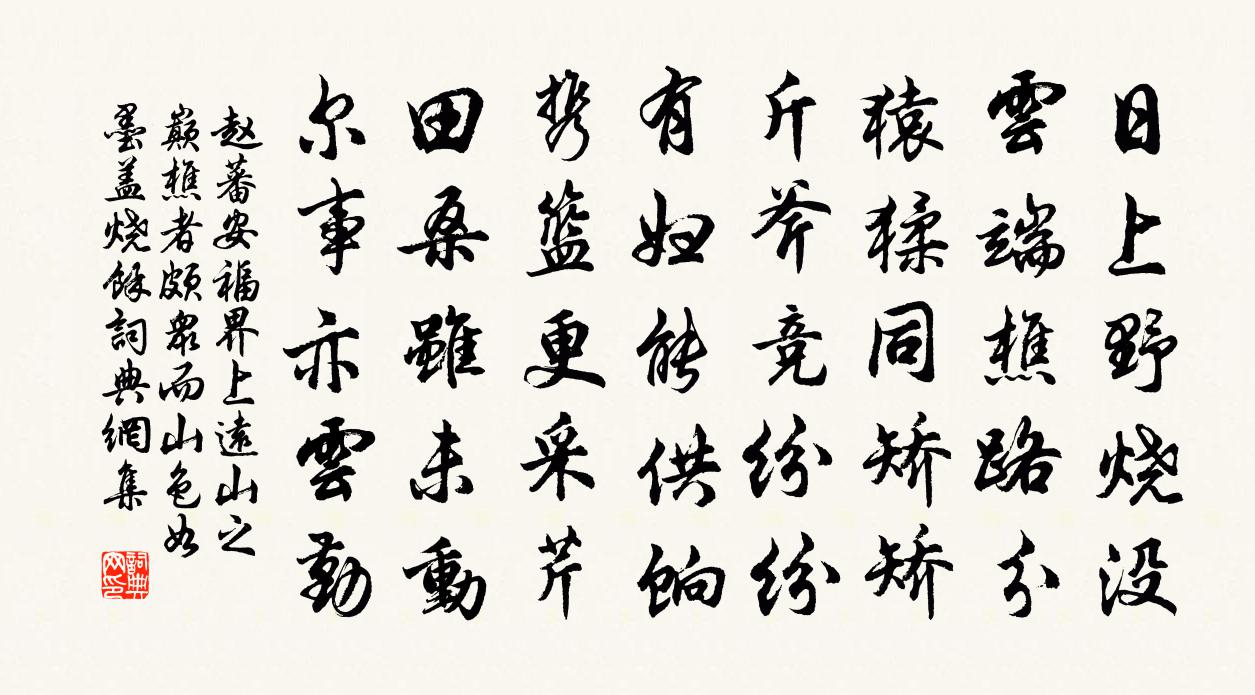 日上野烧没
雲端樵路分
猿猱同矫矫
斤斧竞纷纷
有妇能供饷
携篮更采芹
田桑虽未動
尔事亦雲勤
赵蕃安福界上遠山之
巅樵者颇衆而山色如
墨盖烧餘詞典網集
詞典网印